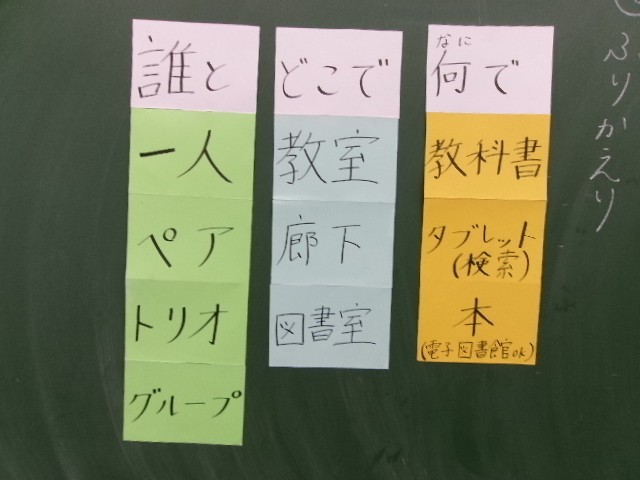 誰と
一人
ペア
トリオ
グループ
どこで
教室
廊下
図書室
なに
何で
教科書
タブレット
(検索)
本
(電子図書館ok)
ふりかえり